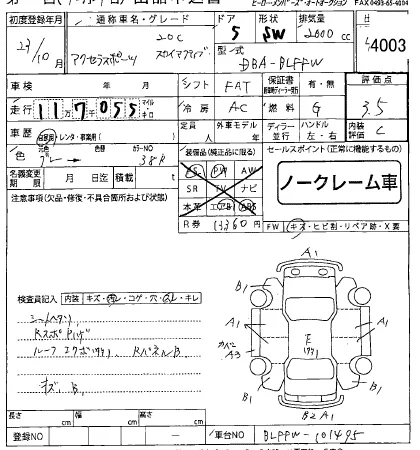 ヒーローメンバーズ・オートオークション FAX 0493-65-4004
初度登録年月 通称車名・グレード ドア 形状 排気量
23/10 アクセラスポーツ 20C スカイアクティブ 5 SW 2000 cc
4003
型式
DBA-BLFFW
車検 年 月 シフト FAT 保証書 有・無 評価点
走行 117055 マイル キロ 冷房 AC 燃料 G 3.5
車歴 自家用・レンタ・事業用 定員 人 外車モデル 年 ディーラー 並行 ハンドル 左・右 内装評価 C
色 元色 グレー カラーNO 38P
装備品(純正品に限る)
セールスポイント(正常に機能するもの)
名義変更期限 月 日迄 積載 t
PS PW AW
SR TV ナビ
本革 エアB ABS
ノークレーム車
注意事項(欠品・修復・不具合箇所および状態)
R券 11360 円
FW キズ・ヒビ割・リペア跡・X要
検査員記入 内装 キズ・汚レ・コゲ・穴・スレ・キレ
シートヘタリ
ルーフ エクボ RパネルB
キズ、B
A1
B1 B1
A1 A1
カベニ A3
B1 B1
B2 A1
長さ cm 幅 cm 高さ cm
登録NO 車台NO BLFFW-101495